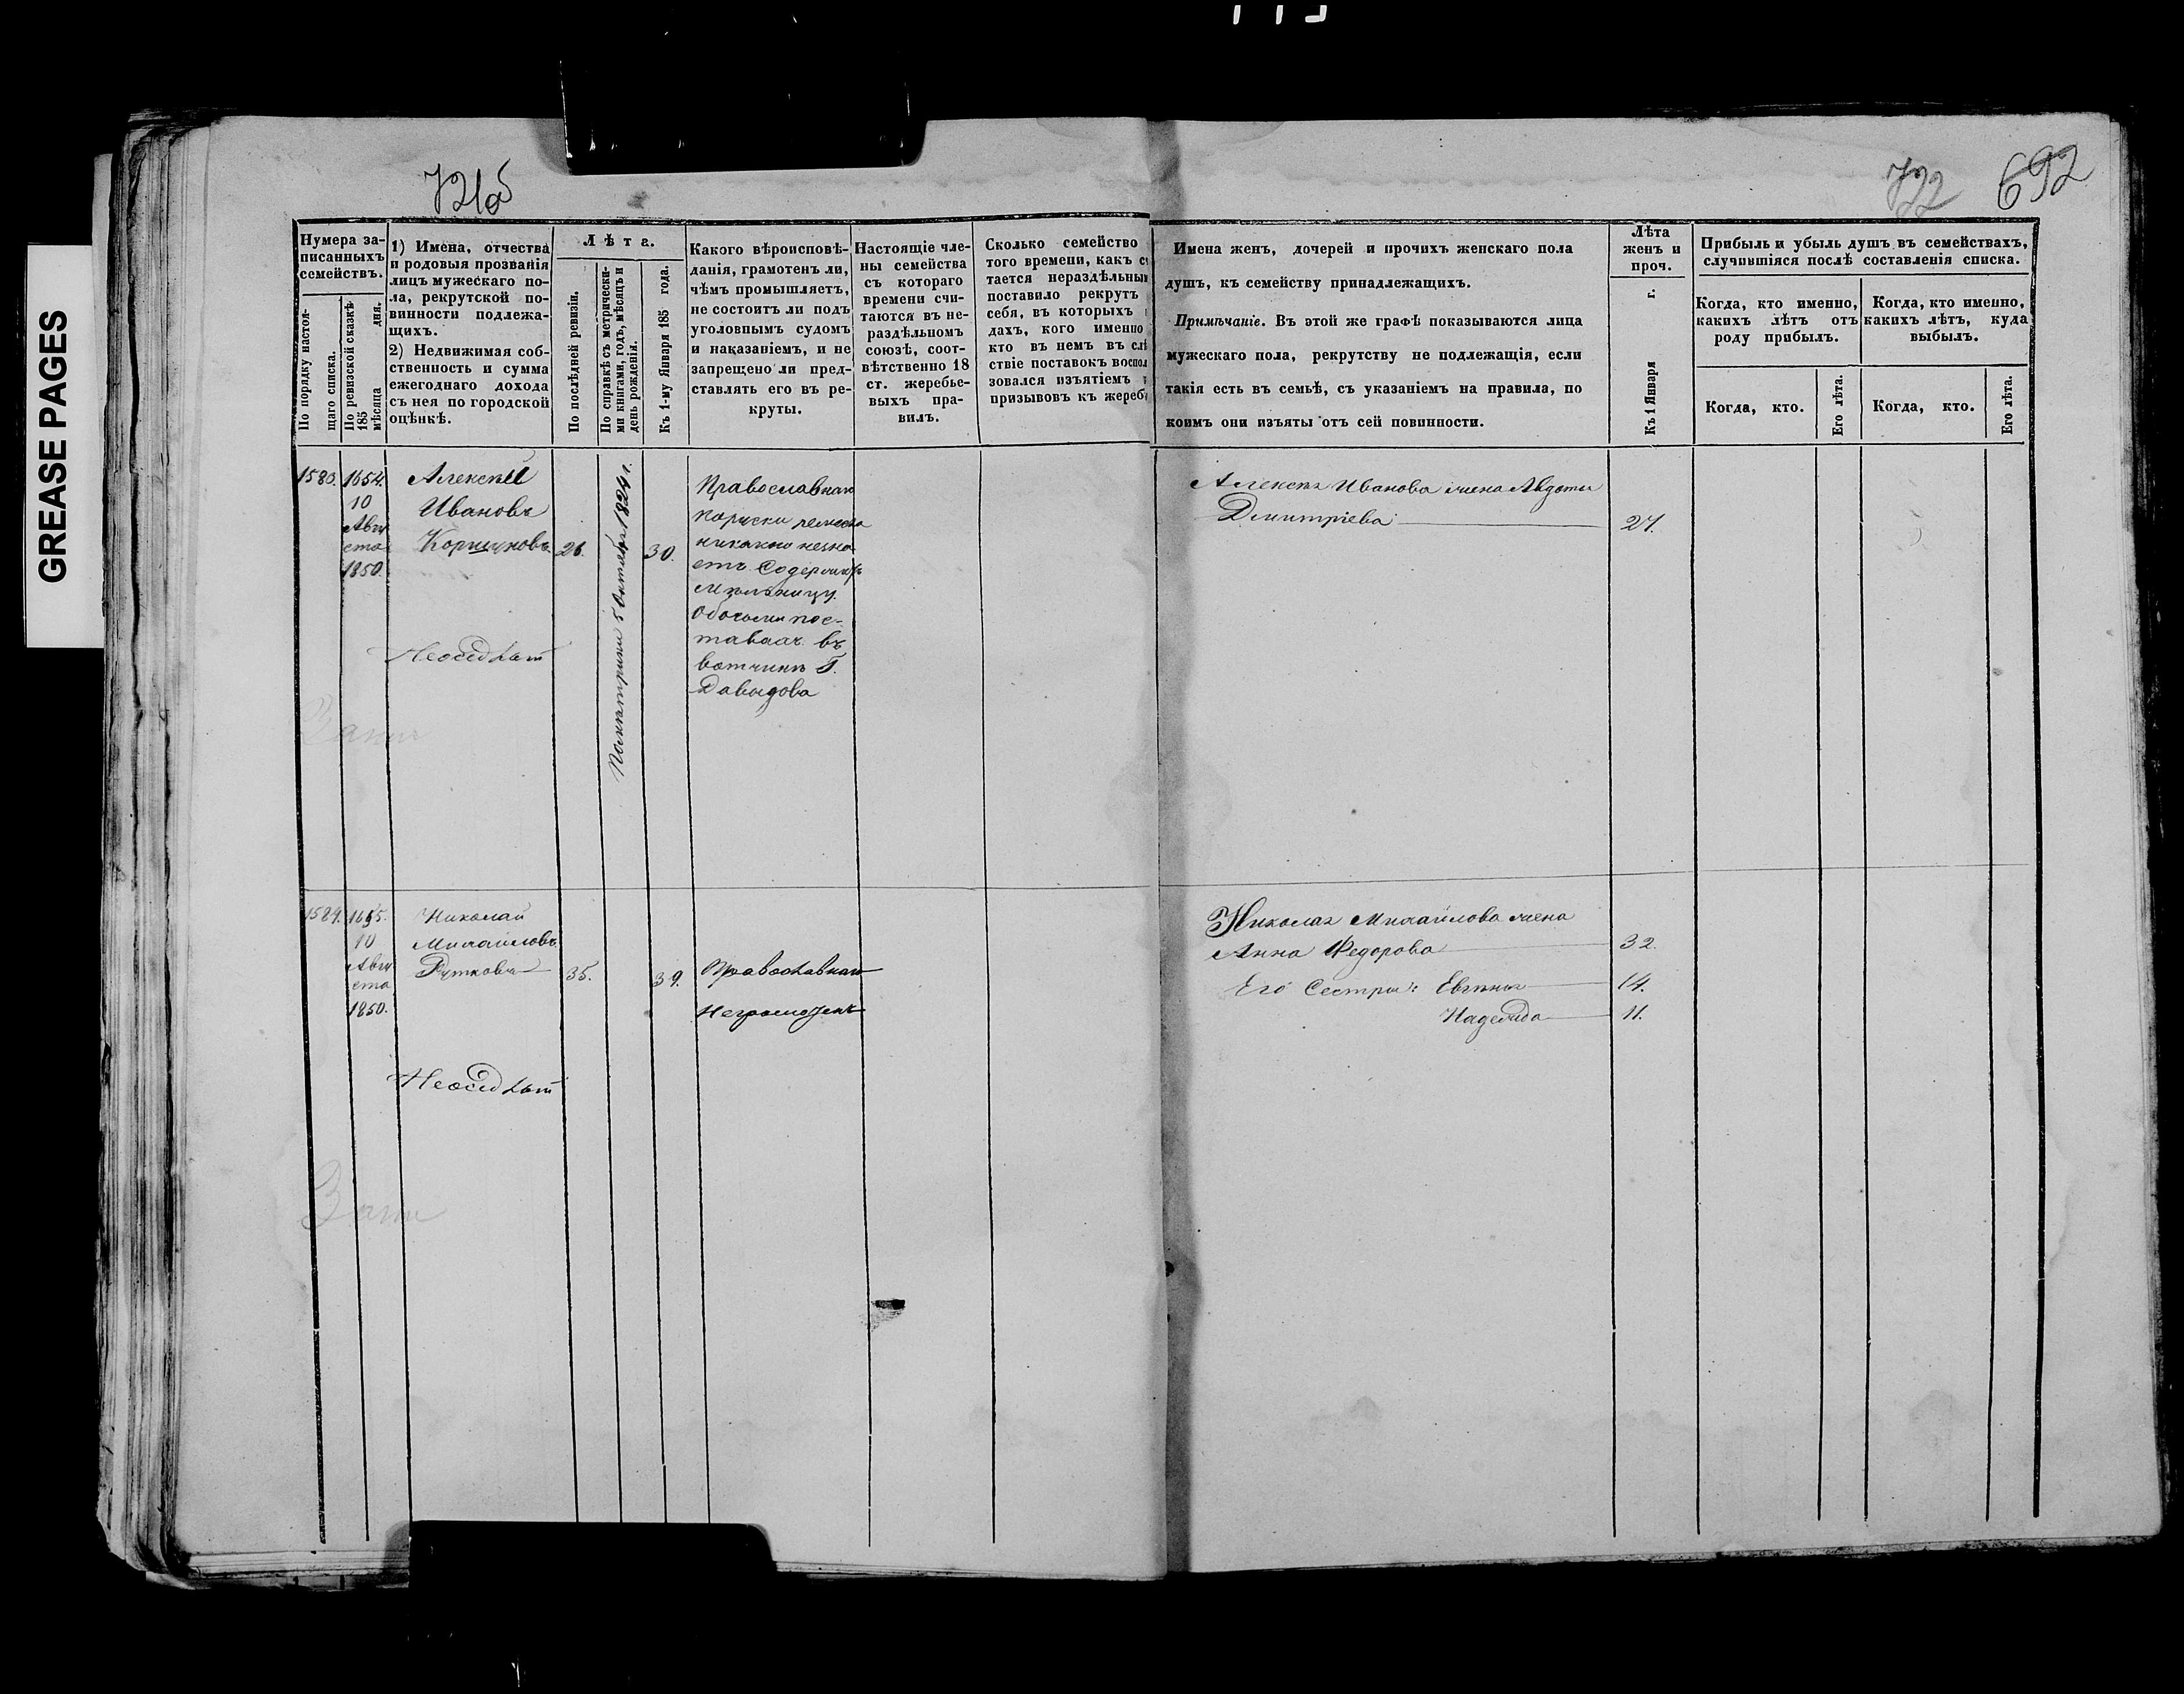 GREASE PAGES
692
722
Нумера за-
писанныхъ
семействъ.
По порядку настоя-
щаго списка.
По ревизской сказкѣ
185
мѣсяца дня.
1) Имена, отчества
и родовыя прозванія
лицъ мужескаго по-
ла, рекрутской по-
винности подлежа-
щихъ.
2) Недвижимая соб-
ственность и сумма
ежегоднаго дохода
съ нея по городской
оцѣнкѣ.
Лѣта.
По послѣдней ревизіи.
По справкѣ съ метрически-
ми книгами, годъ, мѣсяцъ и
день рожденія.
Къ 1-му Января 185 года.
Какого вѣроисповѣ-
данія, грамотенъ ли,
чѣмъ промышляетъ,
не состоитъ ли подъ
уголовнымъ судомъ
и наказаніемъ, и не
запрещено ли пред-
ставлять его въ ре-
круты.
Настоящіе чле-
ны семейства
съ котораго
времени счи-
таются въ не-
раздѣльномъ
союзѣ, соот-
вѣтственно 18
ст. жеребье-
выхъ пра-
вилъ.
Сколько семейство
того времени, какъ с
тается нераздѣльны
поставило рекрутъ
себя, въ которыхъ
дахъ, кого именно
кто въ немъ въ слѣ
ствіе поставокъ воспол
зовался изъятіемъ
призывовъ къ жереб
Имена женъ, дочерей и прочихъ женскаго пола
душъ, къ семейству принадлежащихъ.
Примѣчаніе. Въ этой же графѣ показываются лица
мужескаго пола, рекрутству не подлежащія, если
такія есть въ семьѣ, съ указаніемъ на правила, по
коимъ они изъяты отъ сей повинности.
Лѣта
женъ и
проч.
Къ 1 Января г.
Прибыль и убыль душъ въ семействахъ,
случившіяся послѣ составленія списка.
Когда, кто именно,
какихъ лѣтъ отъ
роду прибылъ.
Когда, кто именно,
какихъ лѣтъ, куда
выбылъ.
Когда, кто.
Его лѣта.
Когда, кто.
Его лѣта.
1580.
1654.
10
Авгу
ста
1850.
Алексѣй
Ивановъ
26.
5 Октября 1824 г.
30.
Православнаго
ремесла
никакого незна-
етъ. Содержитъ
Мѣльницу
поc-
тавахъ въ
вотчинѣ Г.
Давыдова
Неосѣдлый
Алексѣя Иванова жена Авдотья
Дмитріева
27.
1655.
10
Авгу
ста
1850.
Николай
Михайловъ
35.
39.
Православнаго
Неграмотенъ
Неосѣдлый
Николая Михайлова жена
Анна Федорова
32.
Его Сестры: Евгенія
14.
Надежда
11.